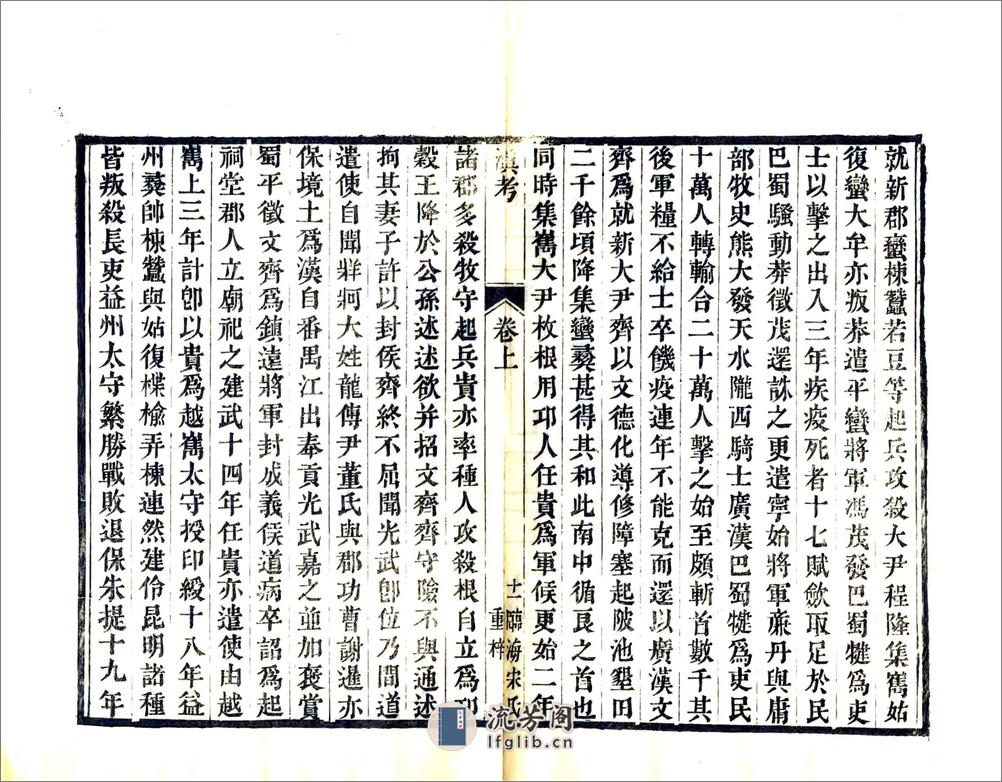 就新郡蠻棟蠶若豆等起兵攻殺大尹程隆集嶲姑
復蠻大牟亦叛莽遣平蠻將軍馮茂發巴蜀犍爲吏
士以擊之出入三年疾疫死者十七賦斂取足於民
巴蜀騷動莽徵茂還誅之更遣寧始將軍廉丹與庸
部牧史熊大發天水隴西騎士廣漢巴蜀犍爲吏民
十萬人轉輸合二十萬人擊之始至頗斬首數千其
後軍糧不給士卒饑疫連年不能克而還以廣漢文
齊爲就新大尹齊以文德化導修障塞起陂池墾田
二千餘頃降集蠻彞甚得其和此南中循良之首也
同時集嶲大尹枚根用邛人任貴爲軍候更始二年
滇考
卷上
十一
臨海宋氏
重梓
諸郡多殺牧守起兵貴亦率種人攻殺根自立爲邛
穀王降於公孫述述欲并招文齊齊守險不與通述
拘其妻子許以封侯齊終不屈聞光武卽位乃間道
遣使自聞牂牁大姓龍傳尹董氏與郡功曹謝暹亦
保境土爲漢自番禺江出奉貢光武嘉之並加褒賞
蜀平徵文齊爲鎮遠將軍封成義侯道病卒詔爲起
祠堂郡人立廟祀之建武十四年任貴亦遣使由越
嶲上三年計卽以貴爲越嶲太守授印綬十八年益
州彞帥棟蠶與姑復楪榆弄棟連然建伶昆明諸種
皆叛殺長吏益州太守繁勝戰敗退保朱提十九年
流芳閣
lfglib.cn